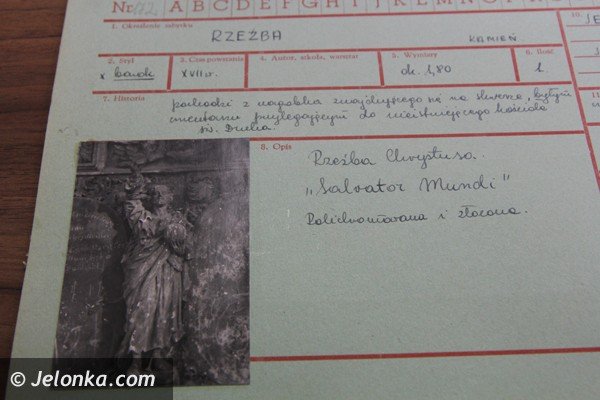 Nr 172 A B C D E F G H I J K L M N O P R S
1. Określenie zabytku
RZEŹBA KAMIEŃ
10.
2. Styl 3. Czas powstania 4. Autor, szkoła, warsztat 5. Wymiary 6. Ilość
x barok XVII w. ok. 1,80 1.
7. Historia
pochodzi z nagrobka znajdującego się na skwerze, byłym
cmentarzu przylegającym do nieistniejącego kościoła
św. Ducha.
11.
8. Opis
Rzeźba Chrystusa.
„Salvator Mundi"
Polichromowana i złocona.
© Jelonka.com